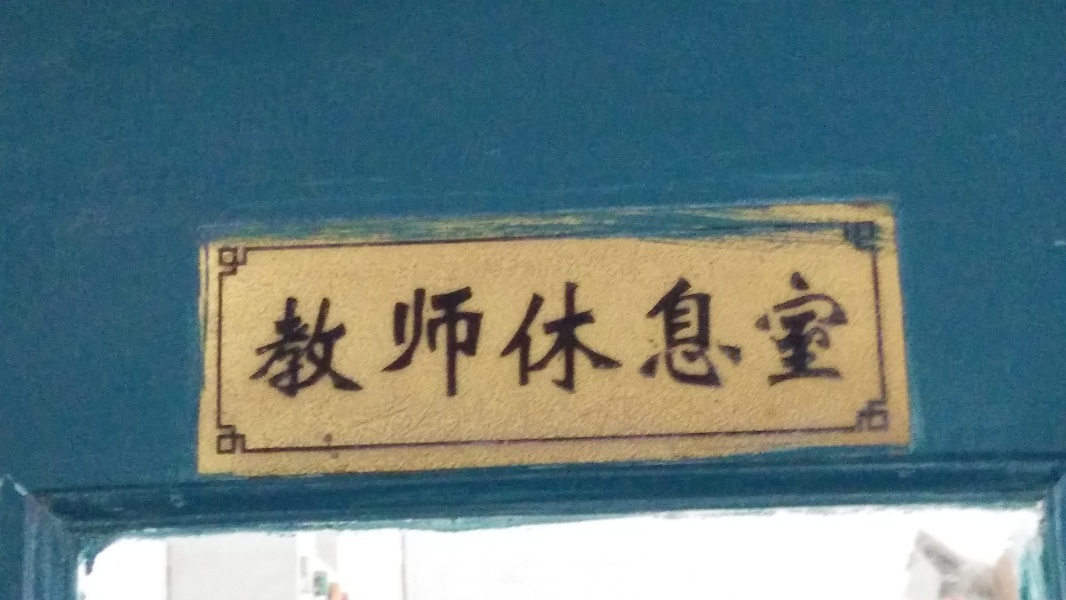 教师休息室